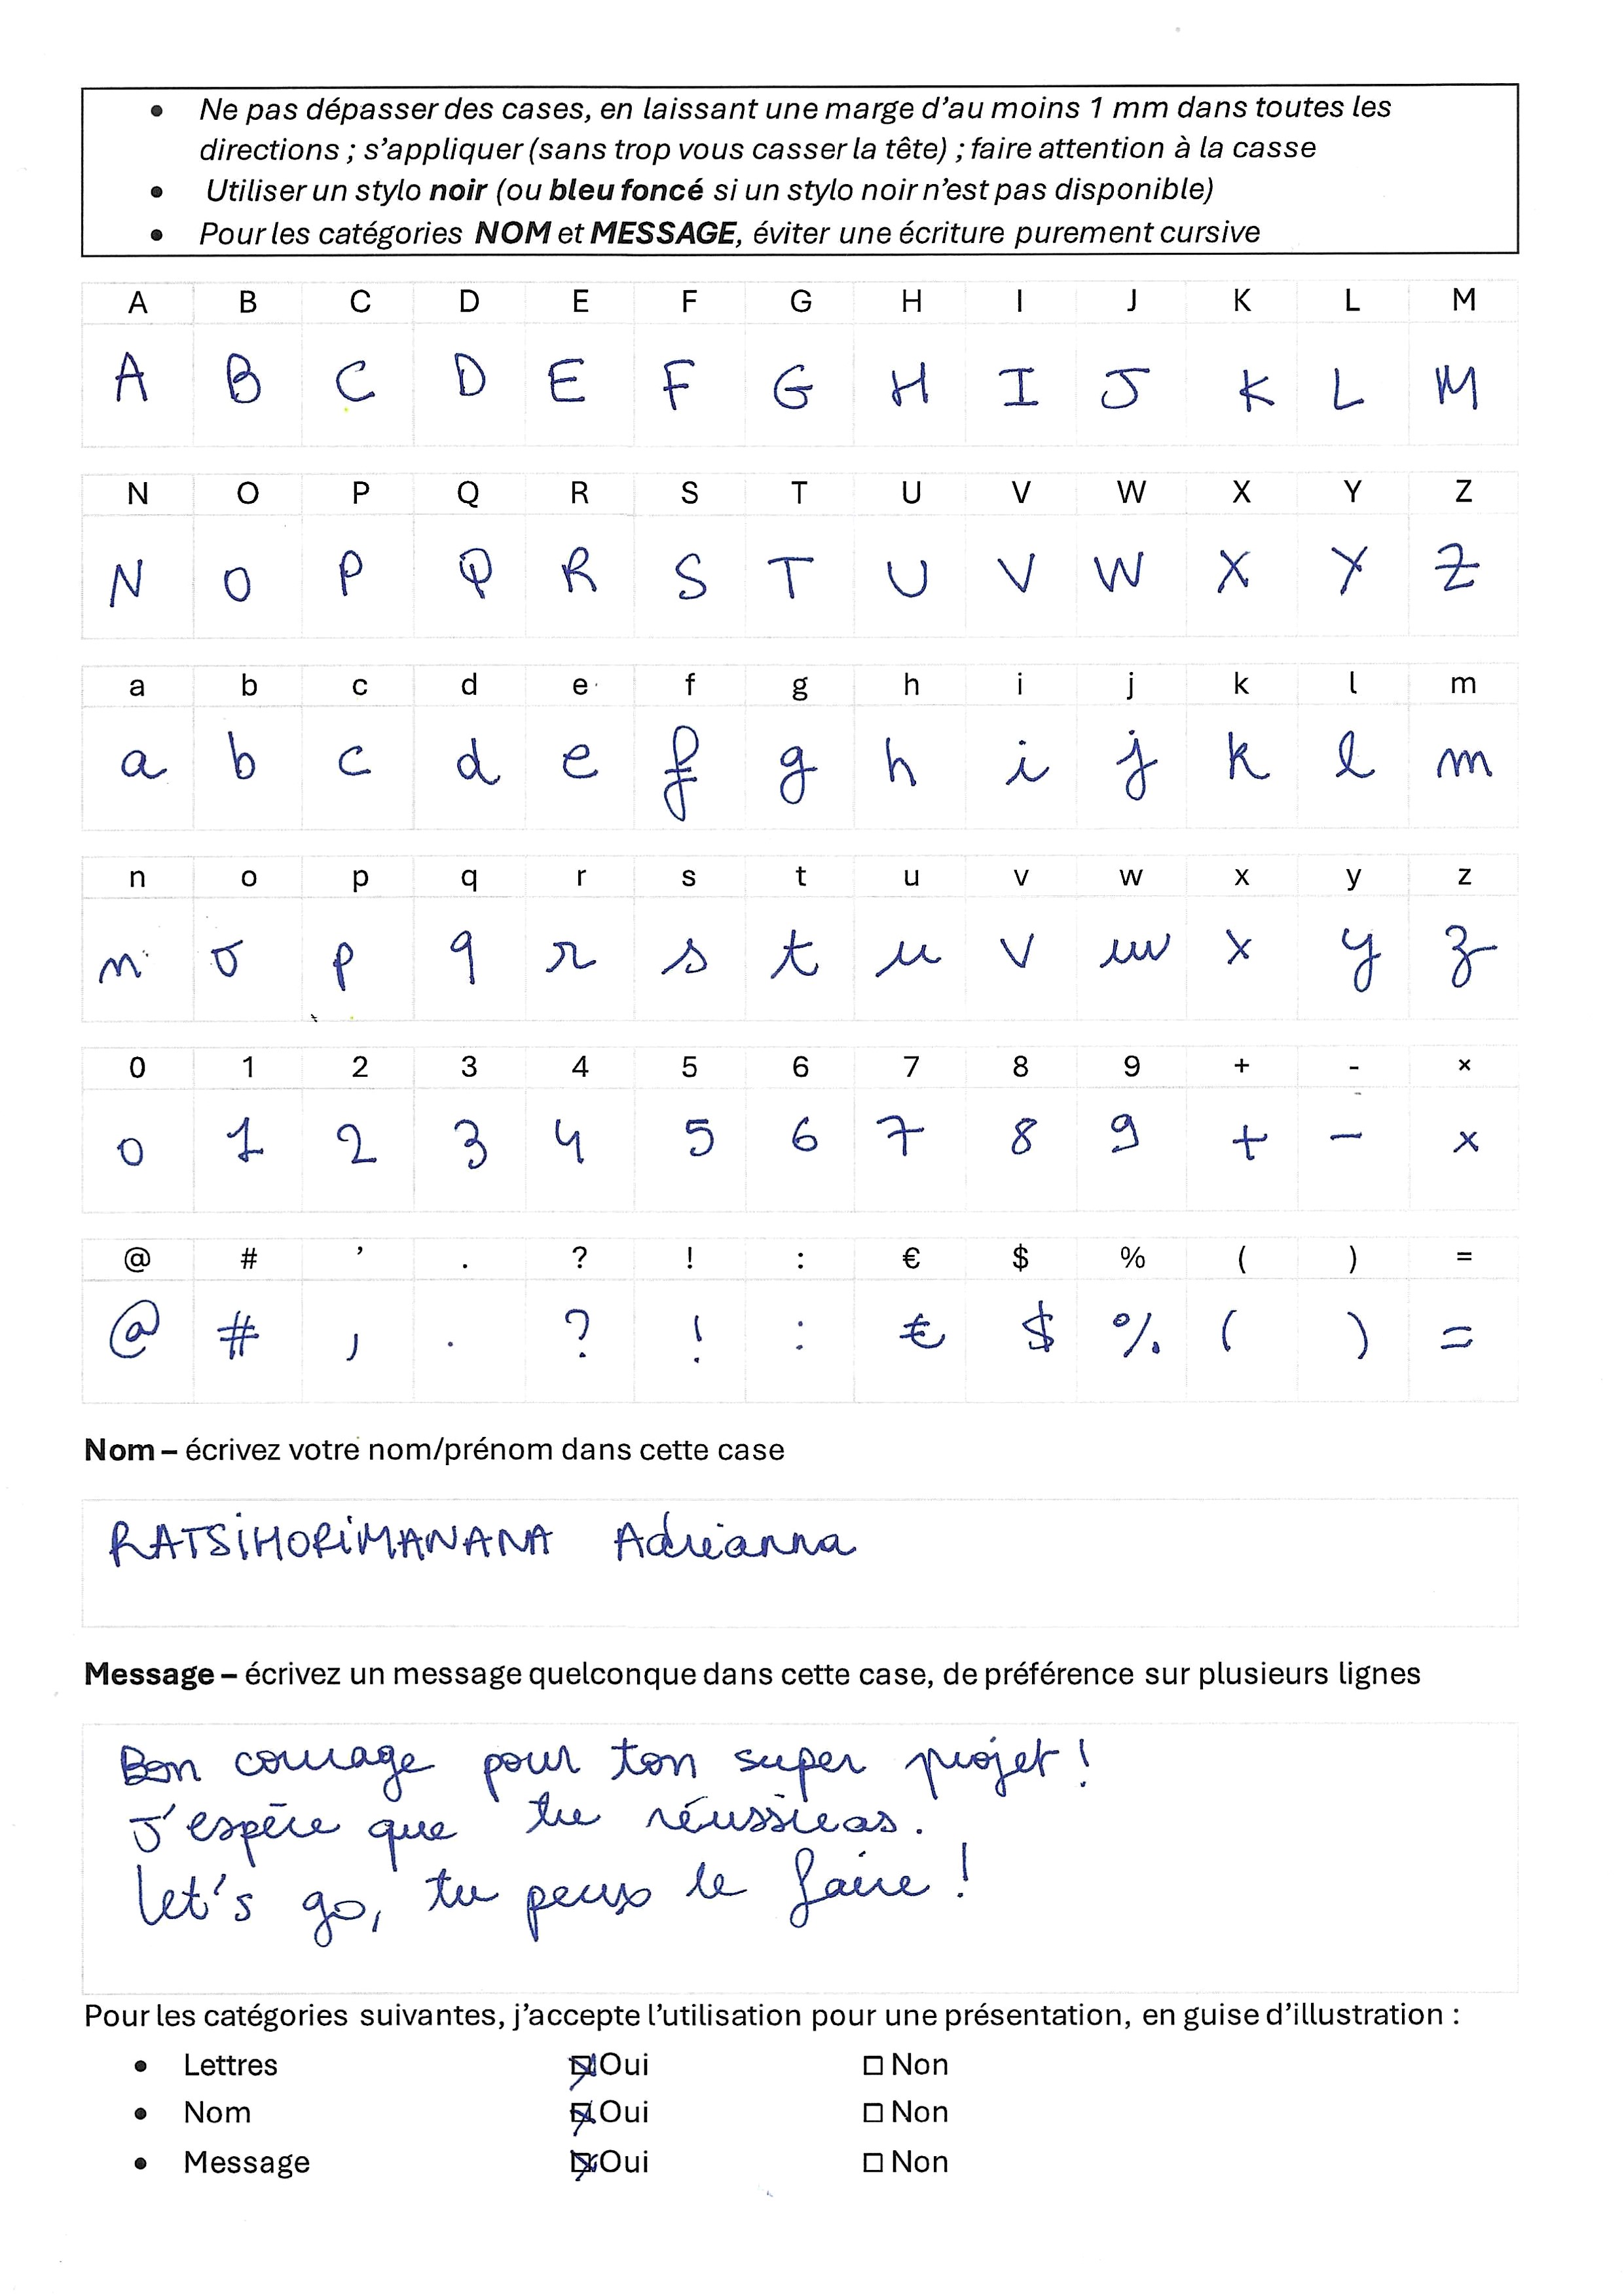 • Ne pas dépasser des cases, en laissant une marge d’au moins 1 mm dans toutes les
directions ; s’appliquer (sans trop vous casser la tête) ; faire attention à la casse
• Utiliser un stylo noir (ou bleu foncé si un stylo noir n’est pas disponible)
• Pour les catégories NOM et MESSAGE, éviter une écriture purement cursive
A B C D E F G H I J K L M
A B C D E F G H I J K L M
N O P Q R S T U V W X Y Z
N O P Q R S T U V W X Y Z
a b c d e f g h i j k l m
a b c d e f g h i j k l m
n o p q r s t u v w x y z
n o p q r s t u v w x y z
0 1 2 3 4 5 6 7 8 9 + - ×
0 1 2 3 4 5 6 7 8 9 + - ×
@ # ’ . ? ! : € $ % ( ) =
@ # , . ? ! : € $ % ( ) =
Nom – écrivez votre nom/prénom dans cette case
RATSiHORiMANANA Adrianna
Message – écrivez un message quelconque dans cette case, de préférence sur plusieurs lignes
Bon courage pour ton super projet !
J'espère que tu réussiras.
Let's go, tu peux le faire !
Pour les catégories suivantes, j’accepte l’utilisation pour une présentation, en guise d’illustration :
• Lettres ☒ Oui ☐ Non
• Nom ☒ Oui ☐ Non
• Message ☒ Oui ☐ Non